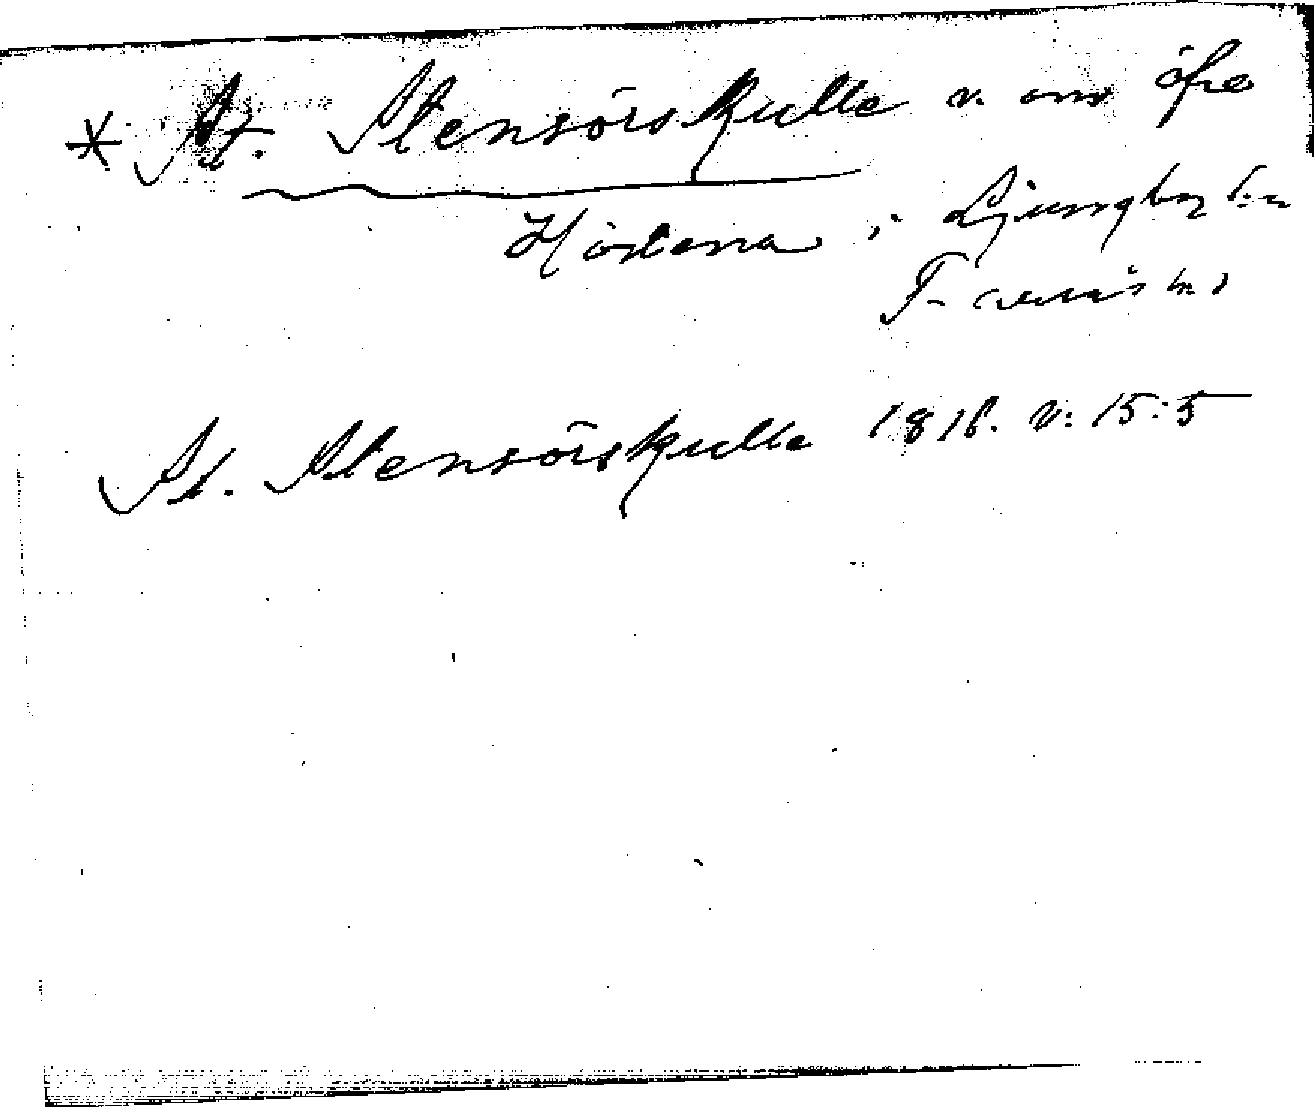 * St. Stensörskulle v. om öfre
Hörlena i Ljungby
F
St. Stensörskulle 1818. v: 15:5